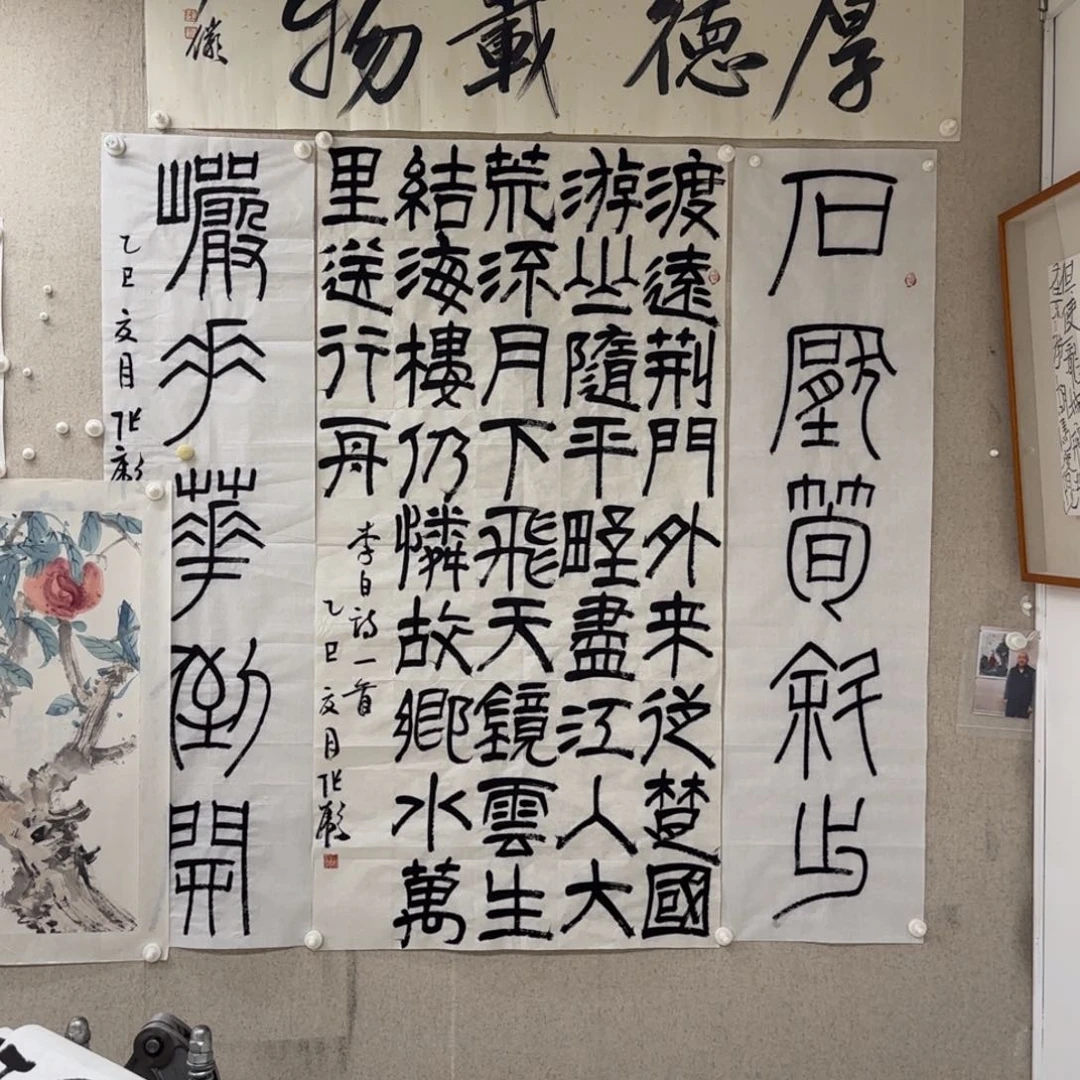 厚德載物
石壓筍斜出
渡遠荆門外来從楚國
游山隨平野盡江入大
荒流月下飛天鏡雲生
結海樓仍憐故鄉水萬
里送行舟
李白詩一首
乙巳亥月
巖垂華倒開
乙巳亥月
但使龍城飛